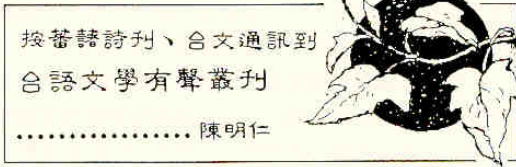 按蕃藷詩刊、台文通訊到
台語文學有聲叢刊
................. 陳明仁